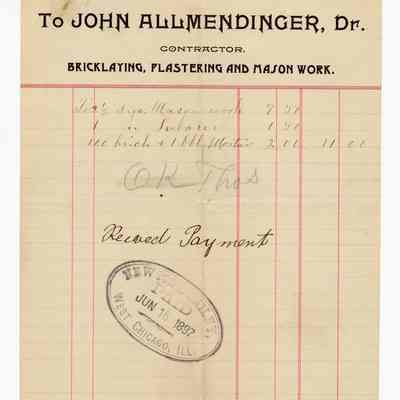 To JOHN ALLMENDINGER, Dr.
CONTRACTOR.
BRICKLAYING, PLASTERING AND MASON WORK.
Mason work
1 " Laborer
100 brick & 1 bbl, Mortar 2 00 11 00
OK Thos
Received Payment
NEW
PAID
JUN 16 1897
WEST CHICAGO, ILL.